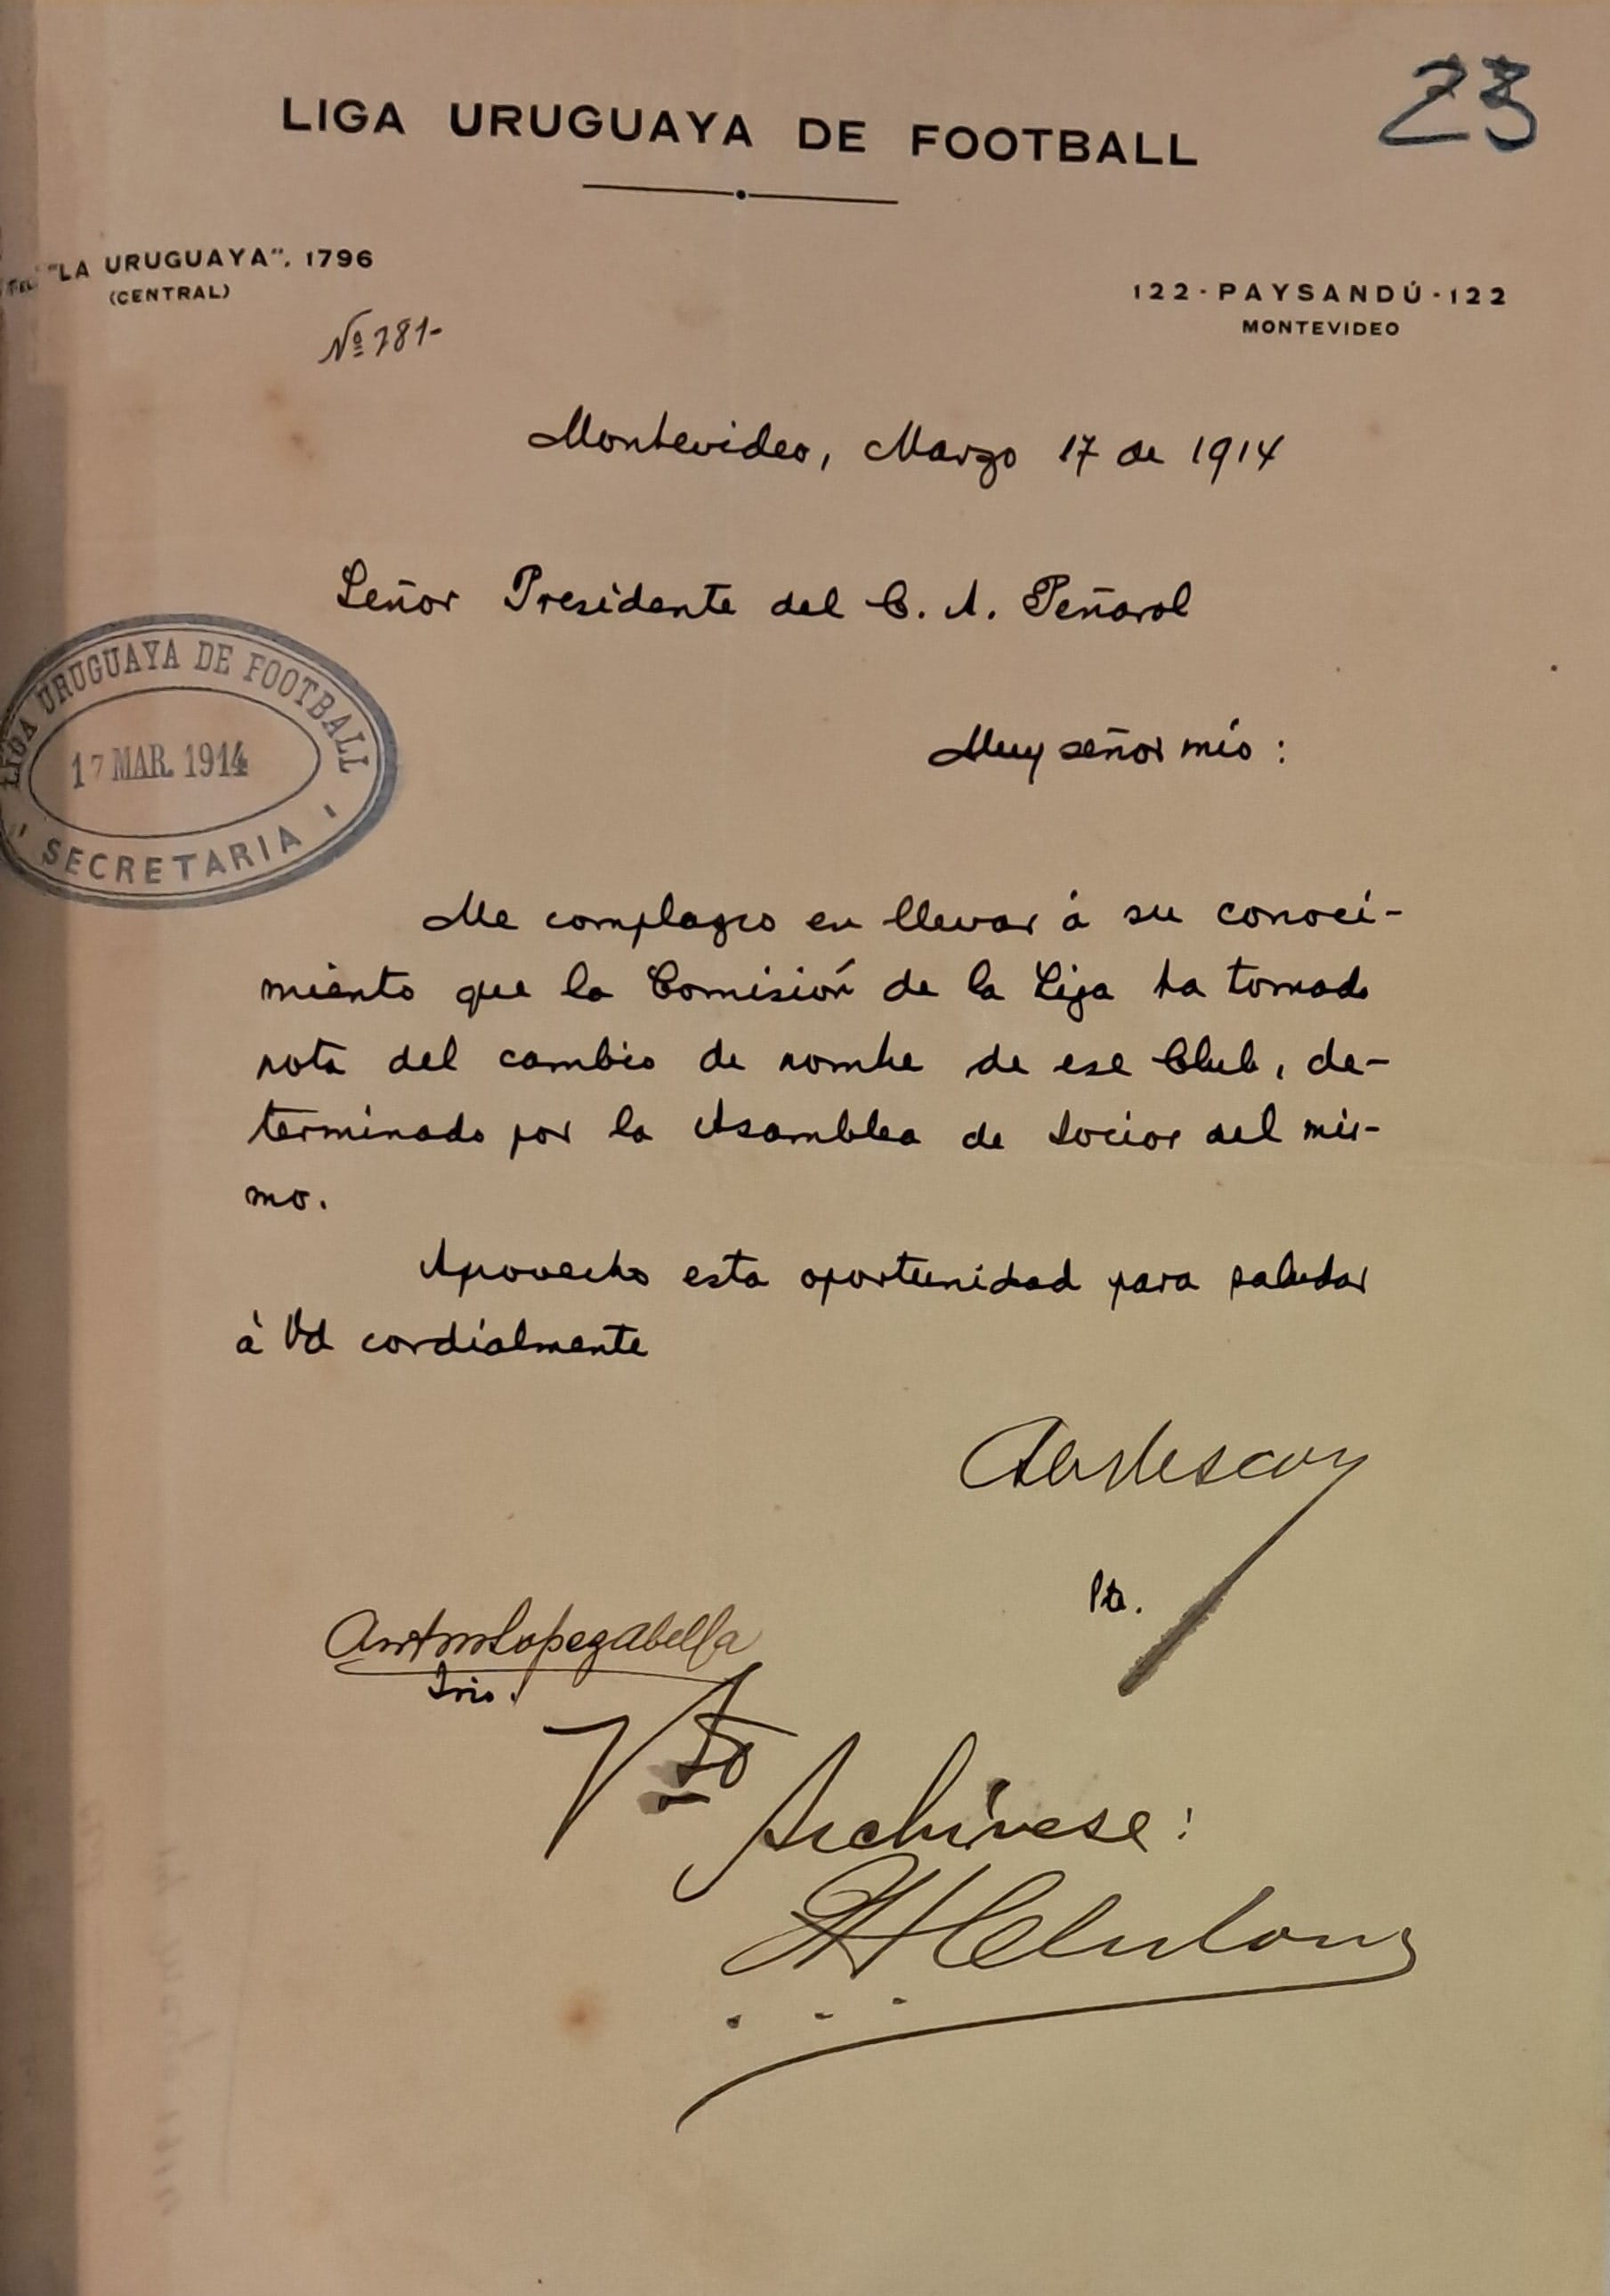 23
LIGA URUGUAYA DE FOOTBALL
"LA URUGUAYA", 1796
(CENTRAL)
122 - PAYSANDÚ - 122
MONTEVIDEO
Nº 781-
Montevideo, Marzo 17 de 1914
Señor Presidente del C. A. Peñarol
LIGA URUGUAYA DE FOOTBALL
17 MAR. 1914
SECRETARIA
Muy señor mío :
Me complazco en llevar á su conoci-
miento que la Comisión de la Liga ha tomado
nota del cambio de nombre de ese Club, de-
terminado por la Asamblea de Socios del mis-
mo.
Aprovecho esta oportunidad para saludar
á Vd cordialmente
Lopez Abella
Srio.
Vto
Archívese :